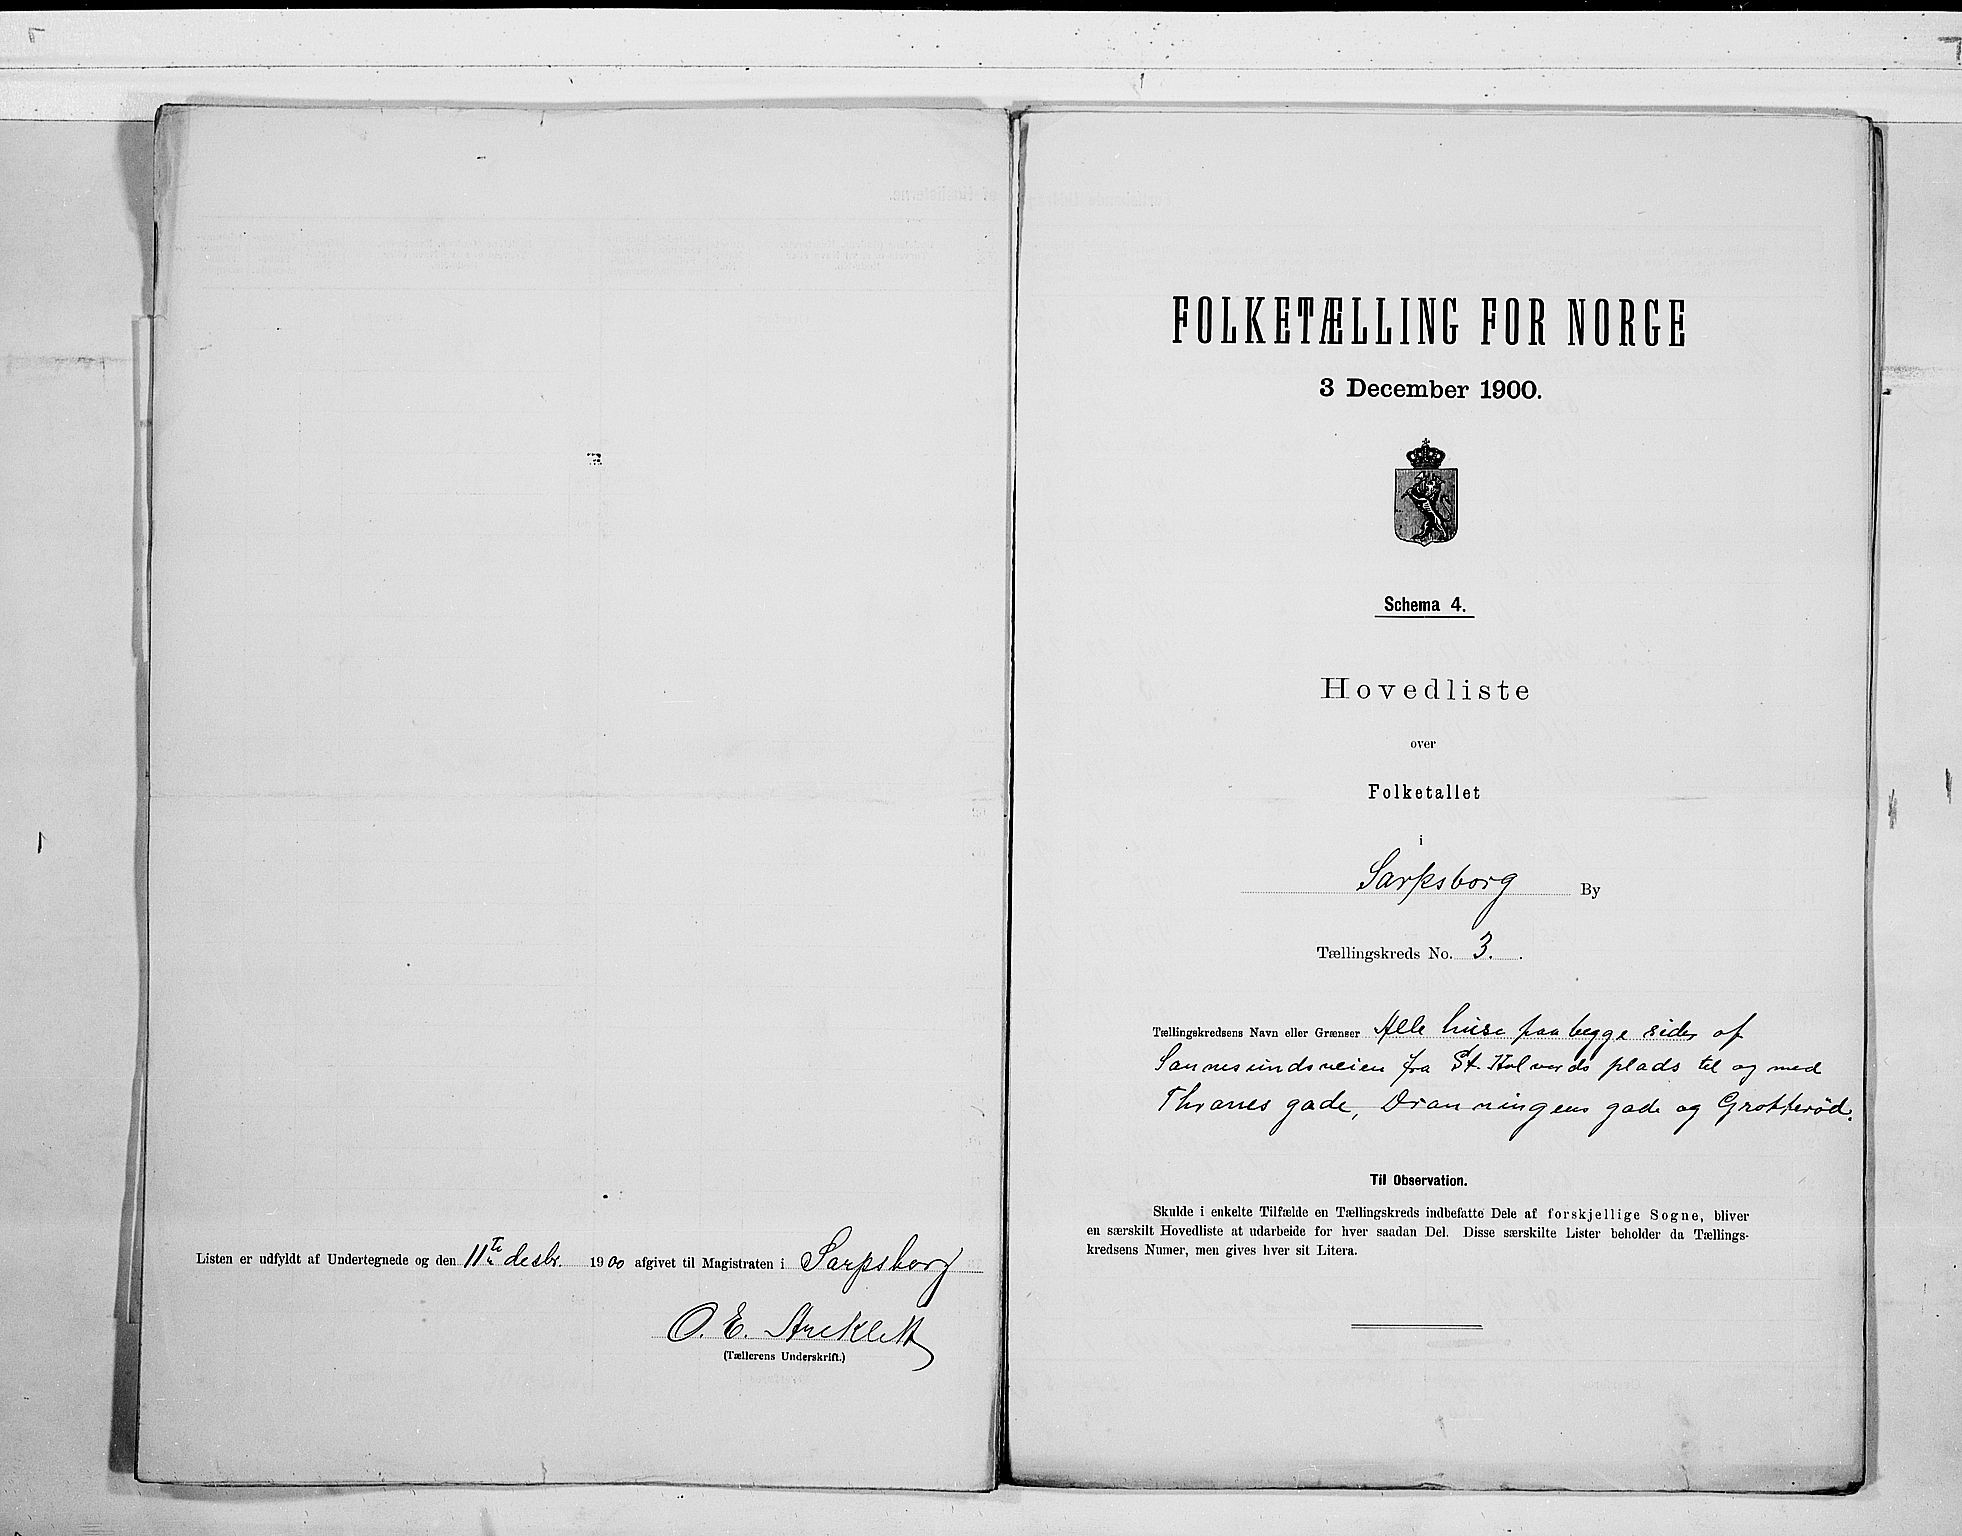 Listen er udfyldt af Undertegnede og den 11te desbr. 1900 afgivet til Magistraten i Sarpsborg
O. E.
(Tællerens Underskrift.)
FOLKETÆLLING FOR NORGE
3 December 1900.
Schema 4.
Hovedliste
over
Folketallet
i
Sarpsborg By
Tællingskreds No. 3.
Tællingskredsens Navn eller Grænser Alle huse paa begge sider af
Sannesundsveien fra St. Halvards plads til og med
Thranes gade, Dronningens gade og Grotterød.
Til Observation.
Skulde i enkelte Tilfælde en Tællingskreds indbefatte Dele af forskjellige Sogne, bliver
en særskilt Hovedliste at udarbeide for hver saadan Del. Disse særskilte Lister beholder da Tællings-
kredsens Numer, men gives hver sit Litera.